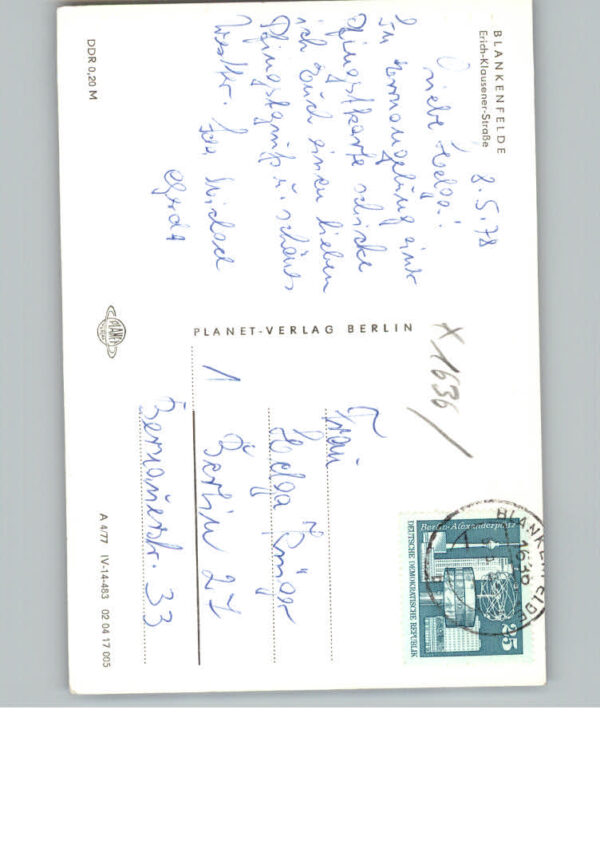 BLANKENFELDE
Erich-Klausener-Straße
8.5.78
Liebe Helga!
In Ermangelung eine
Pfingstkarte schicke
ich Euch einen lieben
Pfingstgruß u. schönes
Wetter. Michael
Gerda
DDR 0,20 M
PLANET-VERLAG BERLIN
PLANET
X 1636 /
BLANKENFELDE
1636
Berlin-Alexanderplatz
DEUTSCHE DEMOKRATISCHE REPUBLIK
25
Frau
Helga Krüger
1
Berlin 27
Bernauerstr. 33
A 4/77 IV-14-483 02 04 17 005